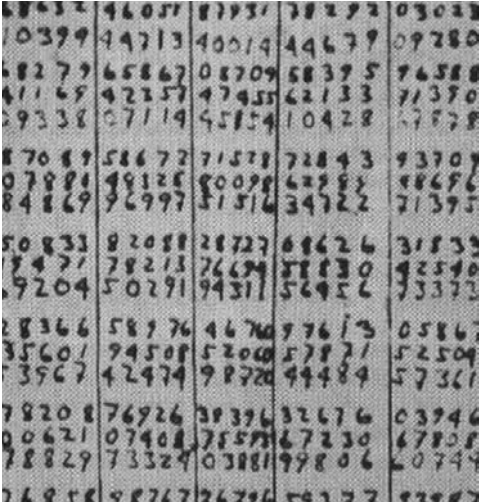 46051 87931 78292 03023
10399 44713 40014 44679 09280
68279 65867 08709 58395 96588
41169 42357 47455 62133 71390
09338 07114 45154 10428
87089 58672 71578 72843 93709
07881 49326 80098
84869 96997 51516 34722 71395
50833 82088 28727 68626 31833
78213 58830 42540
69204 50291 94311 56456 73373
28366 58976 46760 97613 05867
35601 94508 52060 57871 52504
53967 42474 98720 44484 57361
78208 76926 38396 32676 03946
00621 07408 67230 67808
78829 73324 03881 99806 60744
98767